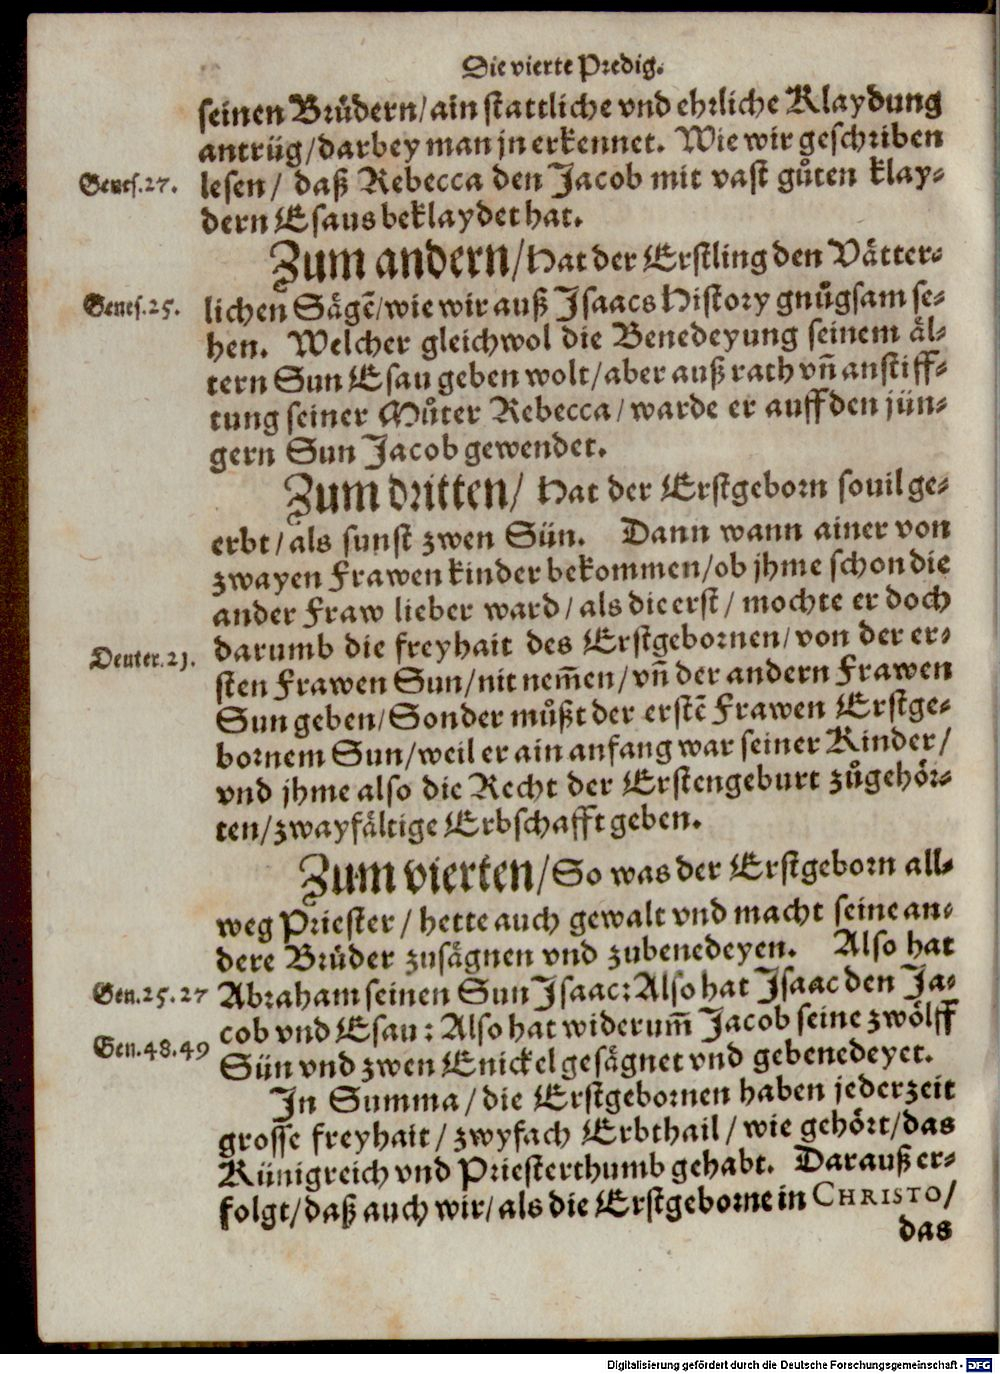 Die vierte Predig.
seinen Brůdern/ ain stattliche vnd ehrliche Klaydung
antrüg/ darbey man jn erkennet. Wie wir geschriben
Genes. 27.
lesen/ daß Rebecca den Jacob mit vast gůten klay-
dern Esaus beklaydet hat.
Zum andern/ Hat der Erstling den Vätter-
Genes. 25.
lichen Sägē/ wie wir auß Isaacs History gnůgsam se-
hen. Welcher gleichwol die Benedeyung seinem äl-
tern Sun Esau geben wolt/ aber auß rath vñ anstiff-
tung seiner Můter Rebecca/ warde er auff den jün-
gern Sun Jacob gewendet.
Zum dritten/ Hat der Erstgeborn souil ge-
erbt/ als sunst zwen Sün. Dann wann ainer von
zwayen Frawen kinder bekommen/ ob jhme schon die
ander Fraw lieber ward/ als die erst/ mochte er doch
Deuter. 21.
darumb die freyhait des Erstgebornen/ von der er-
sten Frawen Sun/ nit nem̄en/ vñ der andern Frawen
Sun geben/ Sonder můßt der erstē Frawen Erstge-
bornem Sun/ weil er ain anfang war seiner Kinder/
vnd jhme also die Recht der Erstengeburt zůgehör-
ten/ zwayfältige Erbschafft geben.
Zum vierten/ So was der Erstgeborn all-
weg Priester/ hette auch gewalt vnd macht seine an-
dere Brüder zusägnen vnd zubenedeyen. Also hat
Gen. 25. 27
Abraham seinen Sun Isaac: Also hat Isaac den Ja-
cob vnd Esau: Also hat widerum̄ Jacob seine zwölff
Gen. 48. 49
Sün vnd zwen Enickel gesägnet vnd gebenedeyet.
In Summa/ die Erstgebornen haben jederzeit
grosse freyhait/ zwyfach Erbthail/ wie gehört/ das
Künigreich vnd Priesterthumb gehabt. Darauß er-
folgt/ daß auch wir/ als die Erstgeborne in CHRISTO/
das
Digitalisierung gefördert durch die Deutsche Forschungsgemeinschaft - DFG